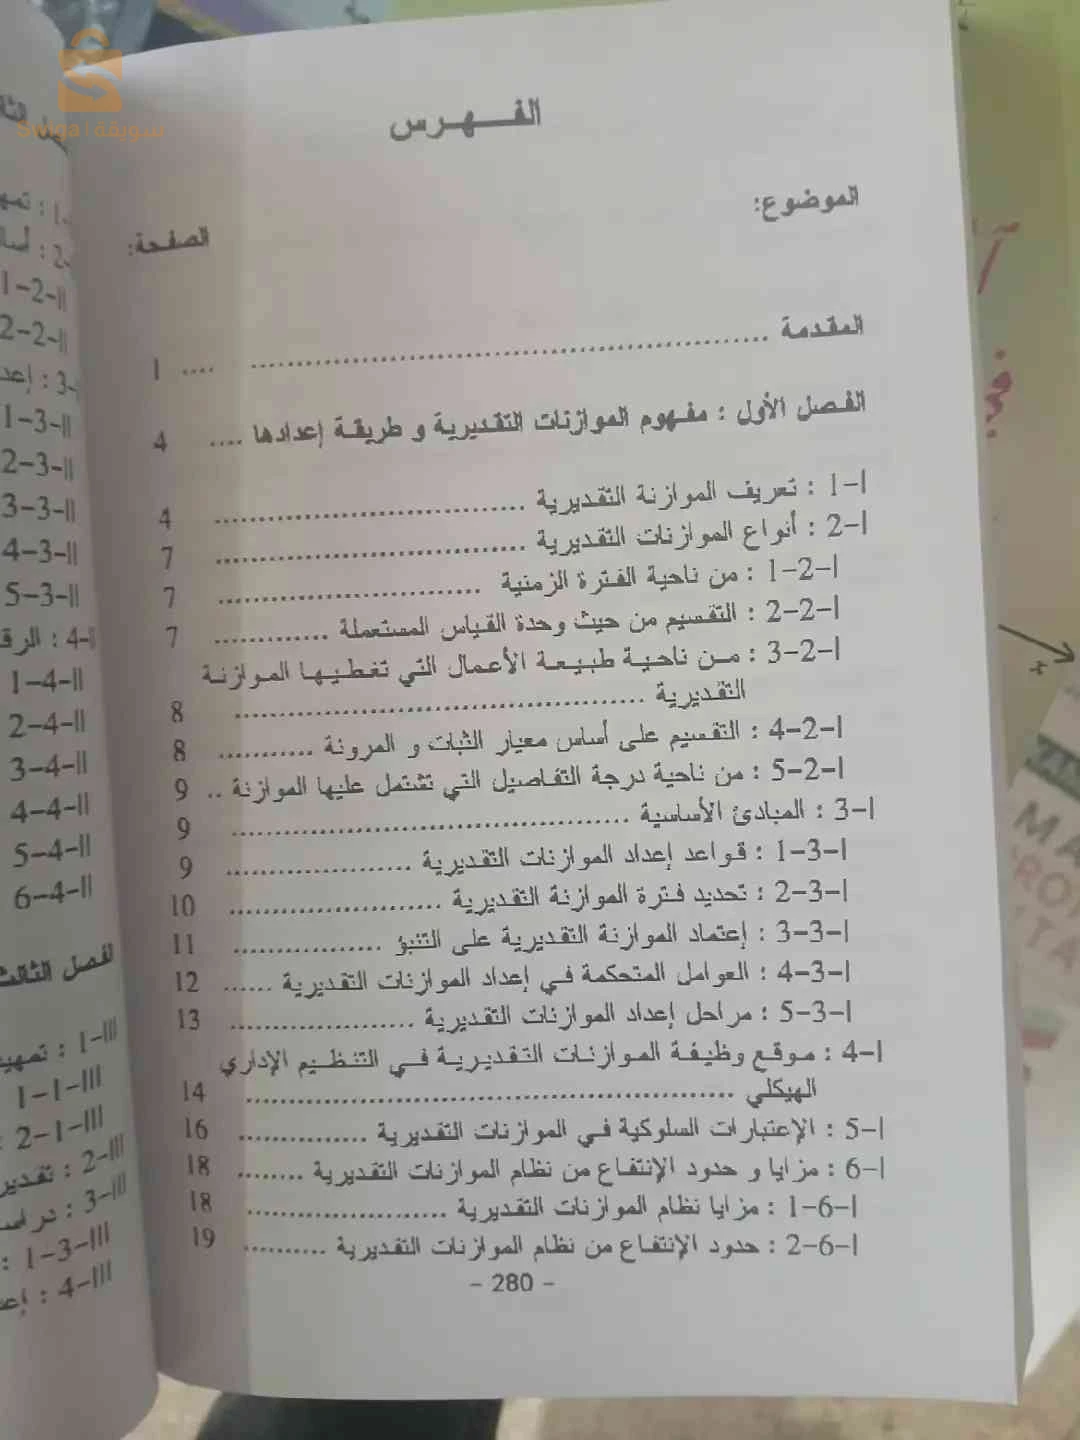 Swiqa سويقة
الفـــهـرس
الموضوع:
الصفحة:
المقدمة .................................................... .... 1
الفصل الأول : مفهوم الموازنات التقديرية و طريقة إعدادها .... 4
I-1 : تعريف الموازنة التقديرية .................................. 4
I-2 : أنواع الموازنات التقديرية .................................. 7
I-2-1 : من ناحية الفترة الزمنية .............................. 7
I-2-2 : التقسيم من حيث وحدة القياس المستعملة ............. 7
I-2-3 : من ناحية طبيعة الأعمال التي تغطيها الموازنة
التقديرية .............................................. 8
I-2-4 : التقسيم على أساس معيار الثبات و المرونة ........... 8
I-2-5 : من ناحية درجة التفاصيل التي تشتمل عليها الموازنة .. 9
I-3 : المبادئ الأساسية ............................................ 9
I-3-1 : قواعد إعداد الموازنات التقديرية ..................... 9
I-3-2 : تحديد فترة الموازنة التقديرية ........................ 10
I-3-3 : إعتماد الموازنة التقديرية على التنبؤ ................. 11
I-3-4 : العوامل المتحكمة في إعداد الموازنات التقديرية ...... 12
I-3-5 : مراحل إعداد الموازنات التقديرية ..................... 13
I-4 : موقع وظيفة الموازنات التقديرية في التنظيم الإداري
الهيكلي ...................................................... 14
I-5 : الإعتبارات السلوكية في الموازنات التقديرية ............... 16
I-6 : مزايا و حدود الإنتفاع من نظام الموازنات التقديرية ........ 18
I-6-1 : مزايا نظام الموازنات التقديرية ....................... 18
I-6-2 : حدود الإنتفاع من نظام الموازنات التقديرية .......... 19
- 280 -
II-2-1
II-2-2
II-3-1
II-3-2
II-3-3
II-3-4
II-3-5
II-4-1
II-4-2
II-4-3
II-4-4
II-4-5
II-4-6
الفصل الثالث
III-1 :
III-1-1
III-1-2 :
III-2 :
III-3 :
III-3-1 :
III-4 :